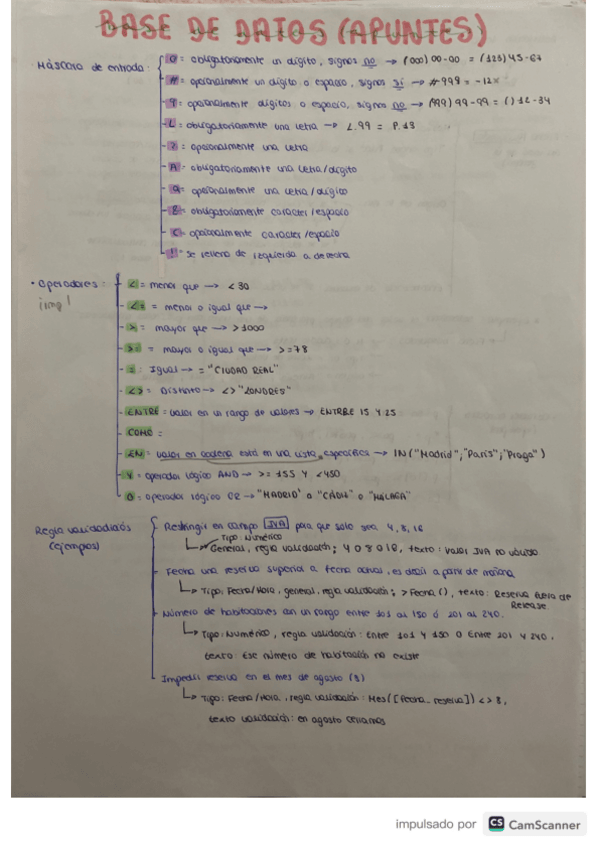 BASE DE DATOS (APUNTES)
Máscara de entrada:
0 = obligatoriamente un dígito, signos no → (000) 00-00 = (123) 45-67
# = opcionalmente un dígito o espacio, signos sí → #999 = -12x
9 = opcionalmente dígitos o espacio, signos no → (99) 99-99 = () 12-34
L = obligatoriamente una letra → L.99 = P.13
? = opcionalmente una letra
A = obligatoriamente una letra/dígito
a = opcionalmente una letra/dígito
& = obligatoriamente caracter/espacio
C = opcionalmente caracter/espacio
! = se rellena de izquierda a derecha
· Operadores:
¡imp!
< = menor que → < 30
<= = menor o igual que →
> = mayor que → > 1000
>= = mayor o igual que → >= 78
= = Igual → = "CIUDAD REAL"
<> = Distinto → <> "LONDRES"
ENTRE = valor en un rango de valores → ENTRE 15 Y 25
COMO =
EN = valor en cadena está en una lista específica → IN("Madrid";"París";"Praga")
Y = operador lógico AND → >= 155 Y <450
O = operador lógico OR → "MADRID" o "CÁDIZ" o "MÁLAGA"
Regla validación
(ejemplos)
Restringir en campo IVA para que solo sea 4, 8, 18
Tipo: Numérico
General, regla validación; 4 O 8 O 18, texto: Valor IVA no válido.
Fecha una reserva superior a fecha actual, es decir a partir de mañana
Tipo: Fecha/Hora, general, regla validación; > Fecha(), texto: Reserva fuera de
Release.
Número de habitaciones con un rango entre 101 al 150 ó 201 al 240.
Tipo: Numérico, regla validación: Entre 101 Y 150 O Entre 201 Y 240,
texto: Ese número de habitación no existe
Impedir reserva en el mes de agosto (8)
Tipo: Fecha/Hora, regla validación: Mes([fecha_reserva]) <> 8,
texto validación: en agosto cerramos
impulsado por CS CamScanner